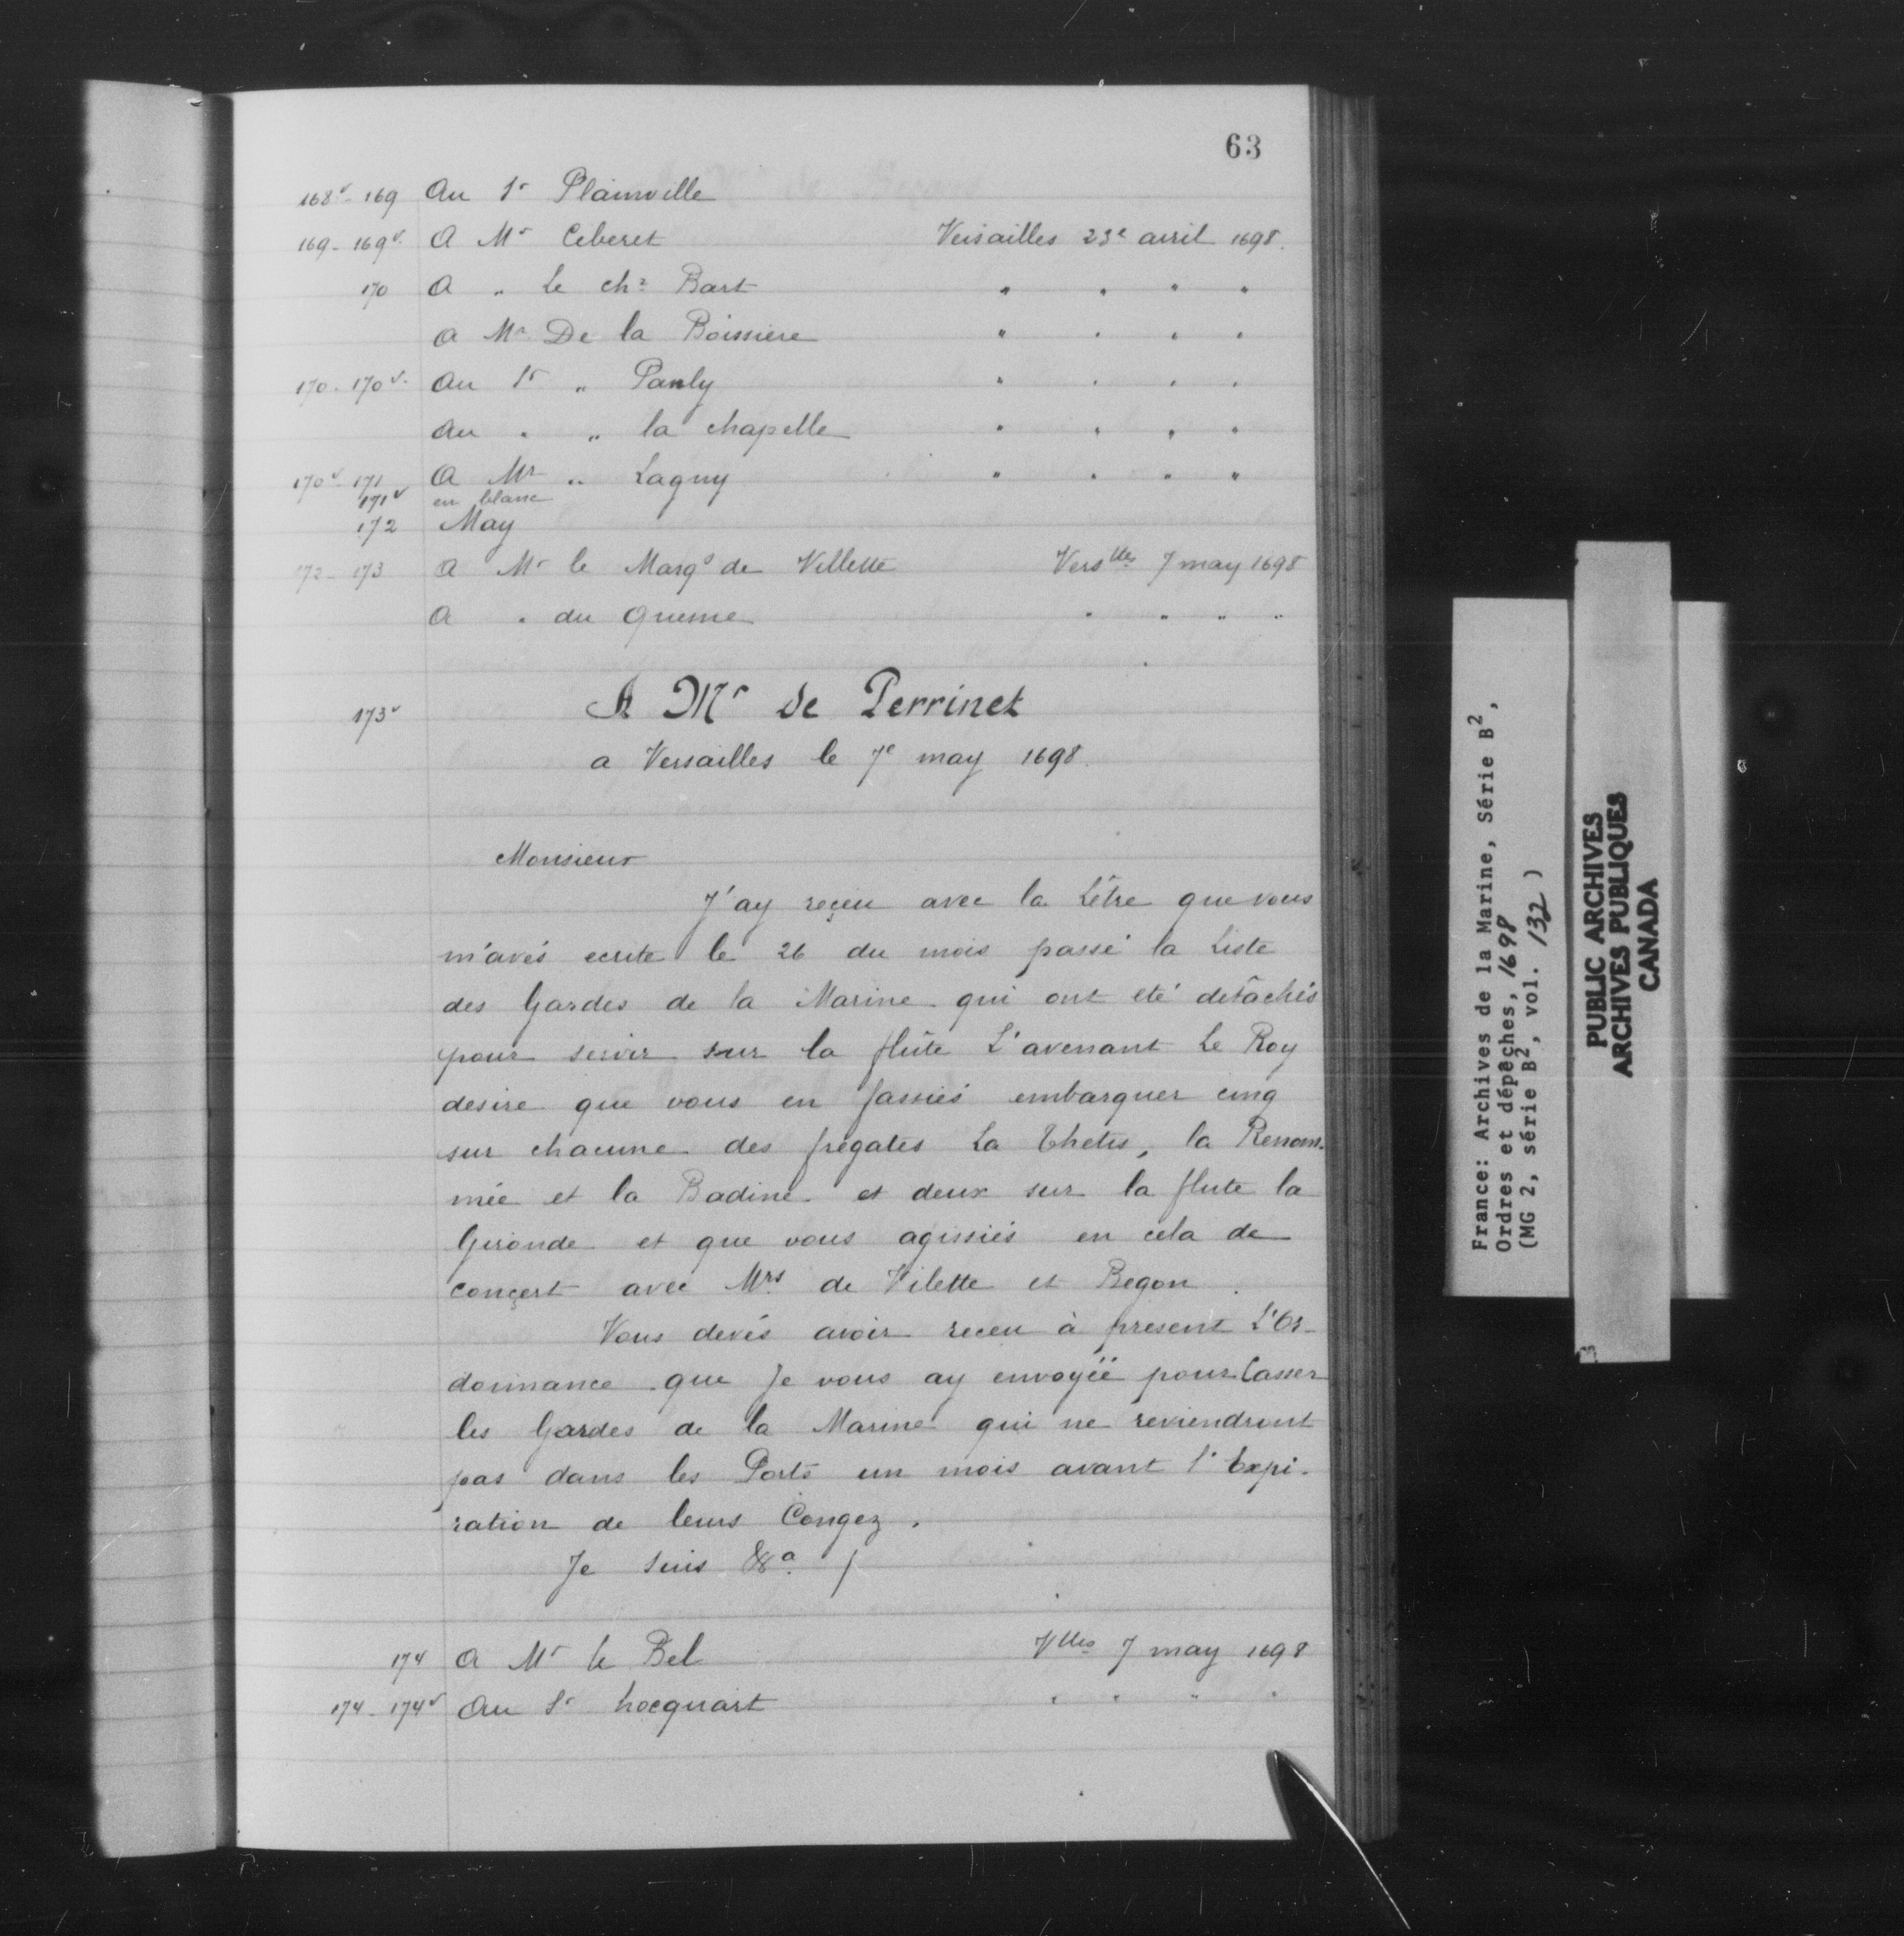 63
168v - 169 Au Sr Plainville
169 - 169v. A Mr Ceberet Versailles 23e avril 1698.
170 A " Le chr Bart " " " "
A Mr De la Boissiere " " " "
170 - 170v. Au Sr " Pauly " " " "
Au " " la chapelle " " " "
170v - 171 A Mr " Lagny " " " "
171v en blanc
172 May
172 - 173 A Mr le Marqs de Villette Verslles 7 may 1698
A " du Quesne " " " "
173v A Mr de Perrinet
a Versailles le 7e may 1698.
Monsieur
J'ay reçeu avec la Létre que vous
m'avés ecrite le 26 du mois passé la Liste
des Gardes de la Marine qui ont eté détâchés
pour servir sur la flûte L'avenant Le Roy
desire que vous en fassiés embarquer cinq
sur chacune des frégates La Thetis, la Renom-
mée et la Badine et deux sur la flute la
Gironde et que vous agissiés en cela de
conçert avec Mrs de Vilette et Begon.
Vous devés avoir receu à present L'Or-
donnance que Je vous ay envoyée pour Casser
les Gardes de la Marine qui ne reviendront
pas dans les Ports un mois avant l'Expi-
ration de leurs Congez.
Je suis &a. /
174 A Mr le Bel Vlles 7 may 1698
174 - 174v Au Sr hocquart " " " "
France: Archives de la Marine, Série B2,
Ordres et dépêches, 1698
(MG 2, série B2, vol. 132)
PUBLIC ARCHIVES
ARCHIVES PUBLIQUES
CANADA